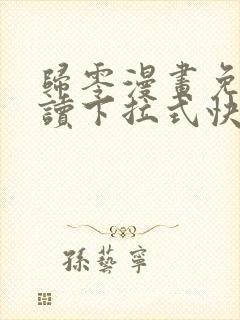 歸零漫畫免
讀下拉式快
孫藝寧